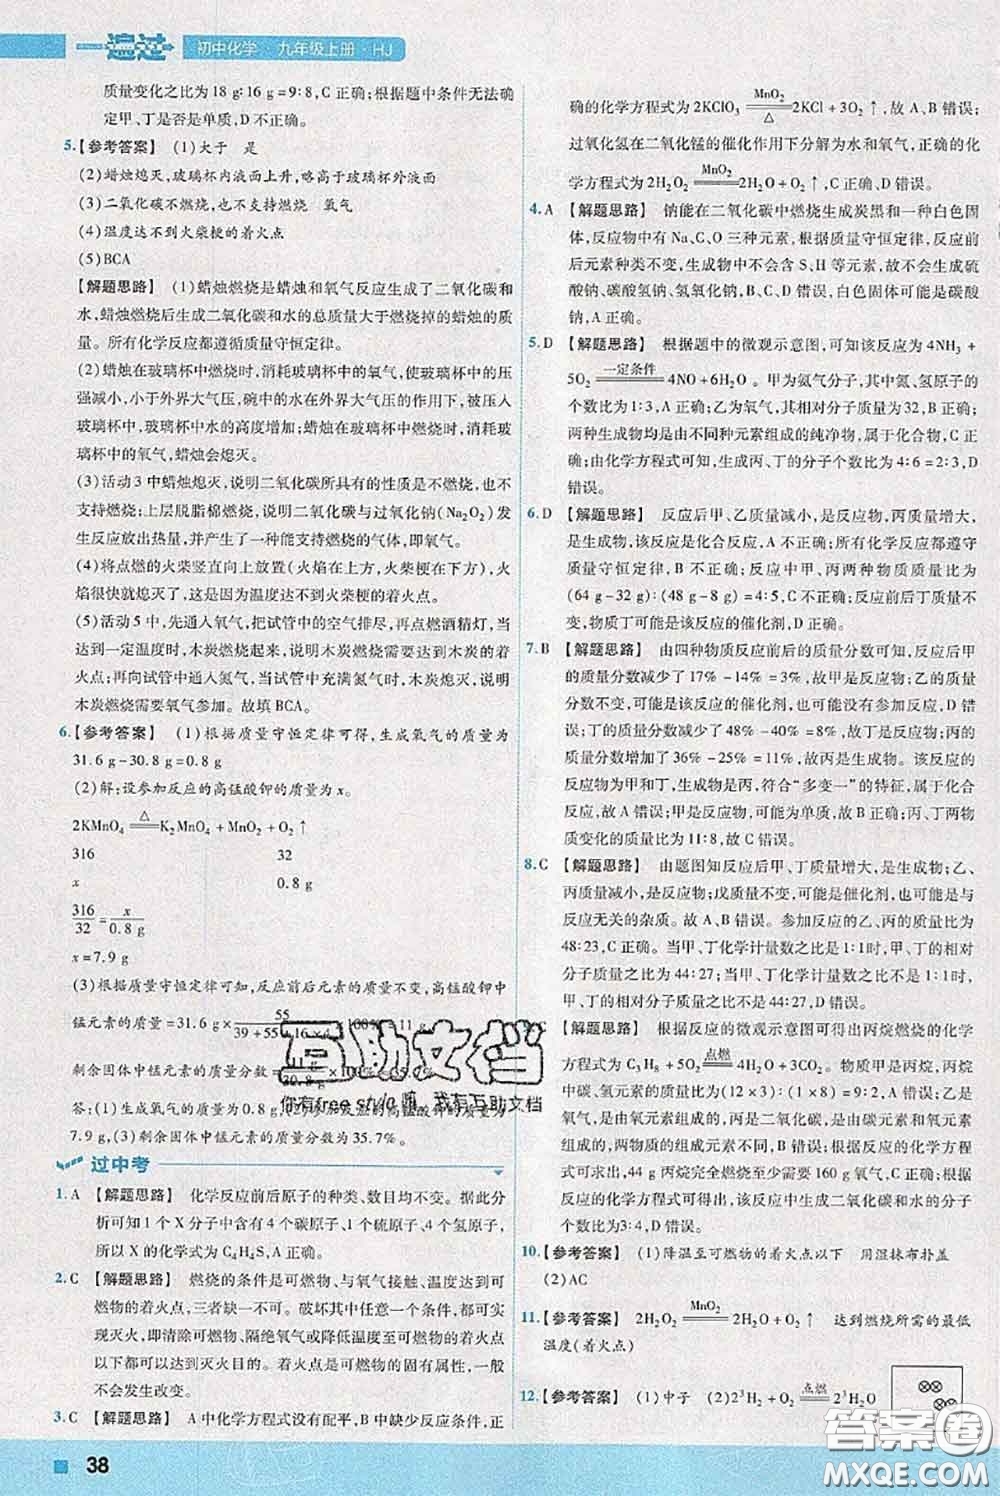 一遍过 初中化学·九年级上册·HJ
质量变化之比为 18 g∶16 g = 9∶8,C 正确;根据题中条件无法确
定甲、丁是否是单质,D 不正确。
5.【参考答案】 (1)大于 是
(2)蜡烛熄灭,玻璃杯内液面上升,略高于玻璃杯外液面
(3)二氧化碳不燃烧,也不支持燃烧 氧气
(4)温度达不到火柴梗的着火点
(5)BCA
【解题思路】 (1)蜡烛燃烧是蜡烛和氧气反应生成了二氧化碳和
水,蜡烛燃烧后生成的二氧化碳和水的总质量大于燃烧掉的蜡烛的质
量。所有化学反应都遵循质量守恒定律。
(2)蜡烛在玻璃杯中燃烧时,消耗玻璃杯中的氧气,使玻璃杯中的压强
减小,小于外界大气压,碗中的水在外界大气压的作用下,被压入
玻璃杯中,玻璃杯中水的高度增加;蜡烛在玻璃杯中燃烧时,消耗玻
璃杯中的氧气,蜡烛会熄灭。
(3)活动 3 中蜡烛熄灭,说明二氧化碳所具有的性质是不燃烧,也不
支持燃烧;上层脱脂棉燃烧,说明二氧化碳与过氧化钠(Na₂O₂)发
生反应放出热量,并产生了一种能支持燃烧的气体,即氧气。
(4)将点燃的火柴竖直向上放置(火焰在上方,火柴梗在下方),火
焰很快就熄灭了,这是因为温度达不到火柴梗的着火点。
(5)活动 5 中,先通入氧气,把试管中的空气排尽,再点燃酒精灯,当
达到一定温度时,木炭燃烧起来,说明木炭燃烧需要达到木炭的着
火点;再向试管中通入氮气,当试管中充满氮气时,木炭熄灭,说明
木炭燃烧需要氧气参加。故填 BCA。
6.【参考答案】 (1)根据质量守恒定律可得,生成氧气的质量为
31.6 g - 30.8 g = 0.8 g
(2)解:设参加反应的高锰酸钾的质量为 x。
2KMnO₄ ≜ K₂MnO₄ + MnO₂ + O₂↑
316 32
x 0.8 g
316/32 = x/0.8 g
x = 7.9 g
(3)根据质量守恒定律可知,反应前后元素的质量不变,高锰酸钾中
锰元素的质量 = 31.6 g × 55/(39 + 55 + 16 × 4) × 100% = 11 g
剩余固体中锰元素的质量分数 = 11 g/30.8 g × 100% =
答:(1)生成氧气的质量为 0.8 g,(2)参加反应的高锰酸钾的质量为
7.9 g,(3)剩余固体中锰元素的质量分数为 35.7%。
过中考
1. A 【解题思路】 化学反应前后原子的种类、数目均不变。据此分
析可知 1 个 X 分子中含有 4 个碳原子、1 个硫原子、4 个氢原子,
所以 X 的化学式为 C₄H₄S,A 正确。
2. C 【解题思路】 燃烧的条件是可燃物、与氧气接触、温度达到可
燃物的着火点,三者缺一不可。破坏其中任意一个条件,都可
实现灭火,即清除可燃物、隔绝氧气或降低温度至可燃物的着火点
以下都可以达到灭火目的。着火点是可燃物的固有属性,一般
不会发生改变。
3. C 【解题思路】 A 中化学方程式没有配平,B 中缺少反应条件,正
确的化学方程式为 2KClO₃ =(MnO₂/△)= 2KCl + 3O₂↑,故 A、B 错误;
过氧化氢在二氧化锰的催化作用下分解为水和氧气,正确的化
学方程式为 2H₂O₂ =(MnO₂)= 2H₂O + O₂↑,C 正确、D 错误。
4. A 【解题思路】 钠能在二氧化碳中燃烧生成炭黑和一种白色固
体,反应物中有 Na、C、O 三种元素,根据质量守恒定律,反应前
后元素种类不变,生成物中不会含 S、H 等元素,故不会生成硫
酸钠、碳酸氢钠、氢氧化钠,B、C、D 错误,白色固体可能是碳酸
钠,A 正确。
5. D 【解题思路】 根据题中的微观示意图,可知该反应为 4NH₃ +
5O₂ =(一定条件)= 4NO + 6H₂O 。甲为氨气分子,其中氮、氢原子的
个数比为 1∶3,A 正确;乙为氧气,其相对分子质量为 32,B 正确;
两种生成物均是由不同种元素组成的纯净物,属于化合物,C 正
确;由化学方程式可知,生成丙、丁的分子个数比为 4∶6 = 2∶3,D
错误。
6. D 【解题思路】 反应后甲、乙质量减小,是反应物,丙质量增大,
是生成物,该反应是化合反应,A 正确;所有化学反应都遵循
质量守恒定律,B 正确;反应中甲、丙两种物质的质量变化之比为
(64 g - 32 g)∶(48 g - 8 g) = 4∶5,C 正确;反应前后丁的质量不
变,物质丁可能为该反应的催化剂,D 错误。
7. B 【解题思路】 由四种物质反应前后的质量分数可知,甲的质
量分数减少了 17% - 14% = 3%,故甲是反应物;乙的质量
分数不变,可能是该反应的催化剂,也可能不参与反应,D 错
误;丁的质量分数减少了 48% - 40% = 8%,故丁是反应物;丙的
质量分数增加了 36% - 25% = 11%,故丙是生成物。该反应的反
应物为甲和丁,生成物是丙,符合“多变一”的特征,属于化合
反应,故 A 错误;甲是反应物,可能为单质,故 B 正确;甲、丙两物
质变化的质量比为 3∶11,故 C 错误。
8. C 【解题思路】 由题图知反应后甲、丁质量增大,是生成物;乙、
丙质量减小,是反应物;戊质量不变,可能是催化剂,也可能是与
反应无关的杂质。故 A、B 错误。参加反应的乙、丙的质量比为
48∶23,C 正确。当甲、丁化学计量数之比是 1∶1 时,甲、丁的相对
分子质量之比为 44∶27;当甲、丁化学计量数之比不是 1∶1 时,
甲、丁的相对分子质量之比不是 44∶27,D 错误。
C 【解题思路】 根据反应的微观示意图可得出丙烷燃烧的化学
方程式为 C₃H₈ + 5O₂ =(点燃)= 3CO₂ + 4H₂O。物质甲是丙烷,丙烷
中碳、氢元素的质量比为(12 × 3)∶(1 × 8) = 9∶2,A 错误;乙是
氧气,是由氧元素组成的单质,丙是水,是由氢元素和氧元素
组成的,两物质的组成元素不同,B 错误;根据反应的化学方程
式可求出,44 g 丙烷完全燃烧至少需要 160 g 氧气,C 正确;根据
反应的化学方程式可得出,该反应中生成二氧化碳和水的分子
个数为 3∶4,D 错误。
10.【参考答案】 (1)降温至可燃物的着火点以下 用湿抹布扑盖
(2)AC
11.【参考答案】 2H₂O₂ =(MnO₂)= 2H₂O + O₂↑ 达到燃烧所需的最低
温度(着火点)
12.【参考答案】 (1)中子 (2)2³H₂ + O₂ =(点燃)= 2³H₂O
互助文档
你有free style嘛,我有互助文档
答案圈
MXQE.COM
38